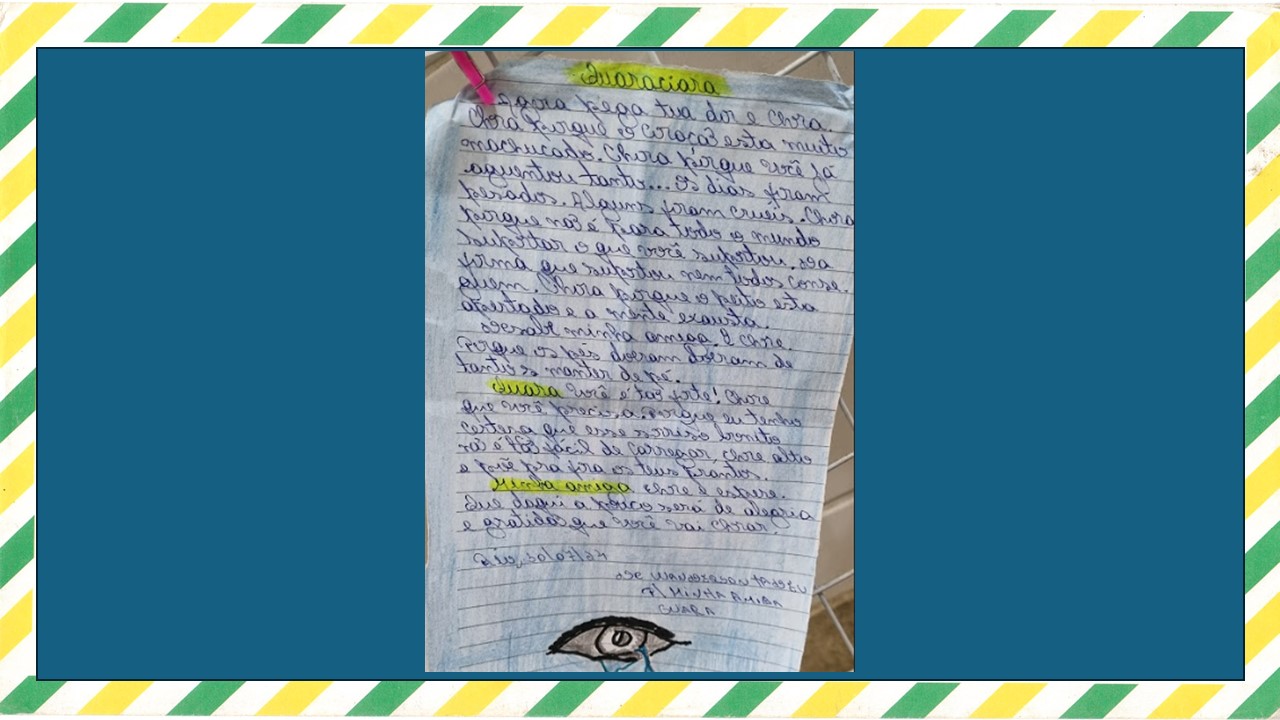 Guaraciara
Agora pega tua dor e chora.
Chora porque o coração esta muito
machucado. Chora porque você já
aguentou tanto... Os dias foram
pesados. Alguns foram cruéis. Chora
porque não é para todo o mundo
suportar o que você suportou. Da
forma que suportou nem todos conse.
guem. Chora porque o peito esta
apertado e a mente exausta.
Desabe minha amiga. E chore.
Porque os pés doeram doeram de
tanto se manter de pé.
Guara você é tão forte! Chore
que você precisa. Porque eu tenho
certeza que esse sorriso bonito
não é tão fácil de carregar, chore alto
e põe pra fora os teus prantos.
Minha amiga chore e espere.
Que daqui a pouco será de alegria
e gratidão que você vai chorar.
Rio, 30/07/24
DE WANDERSON TADEU
P/ MINHA AMIGA
GUARA